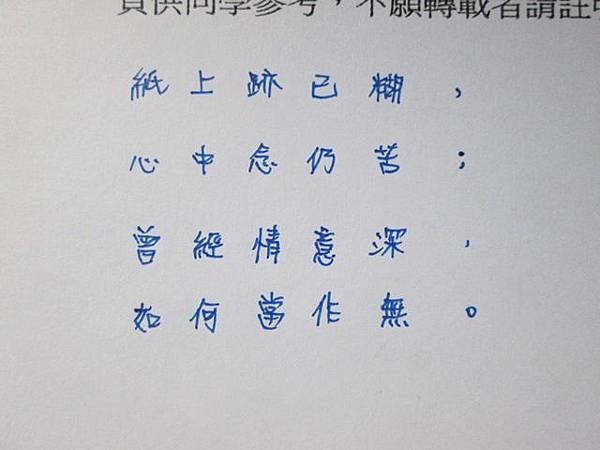 供同學參考，不願轉載者請註
紙上跡已糊，
心中念仍苦；
曾經情意深，
如何當作無。